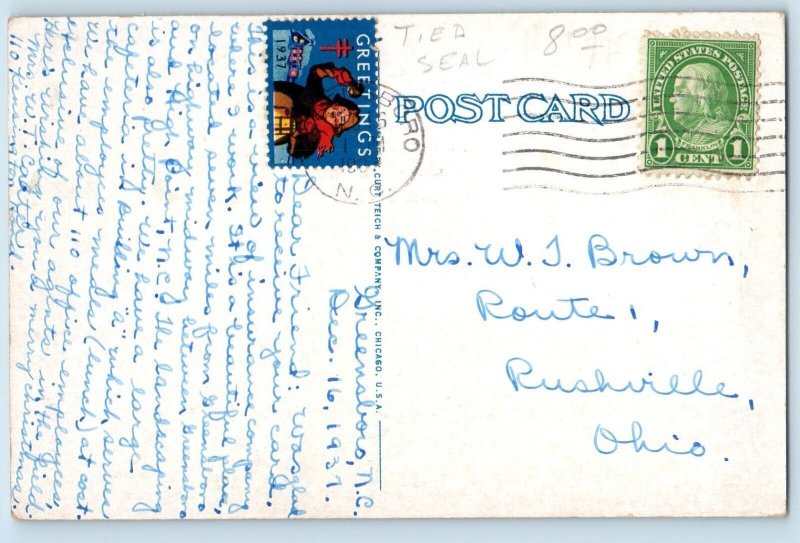 TIED
SEAL
8.00
T
GREETINGS
1937
BORO
N.C.
POST CARD
UNITED STATES POSTAGE
FRANKLIN
1 CENT 1
CURT TEICH & COMPANY, INC., CHICAGO, U.S.A.
Greensboro, N.C.
Dec. 16, 1937.
Dear Friend: Was glad
to receive your card.
This is a view of insurance company
where I work. It is a beautiful place,
located seven miles from Greensboro
on highway midway between Greensboro
and High Point, N.C. The landscaping
is also pretty. We have a large
cafeteria in building "a" which serves
we home office employees meals (lunch) at cost.
about 110 office employees,
exclusive of our agents in the field.
you a merry Christmas.
Mrs. W. I. Carter
110
Mrs. W. I. Brown,
Route 1,
Rushville,
Ohio.